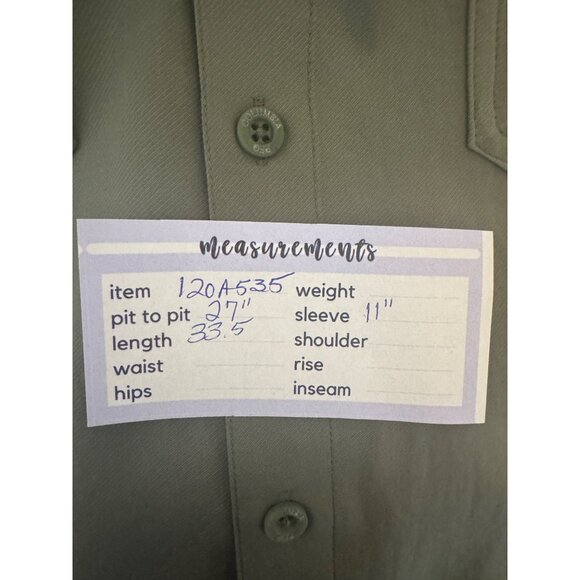 COLUMBIA
measurements
item 120A535 weight
pit to pit 27" sleeve 11"
length 33.5 shoulder
waist rise
hips inseam